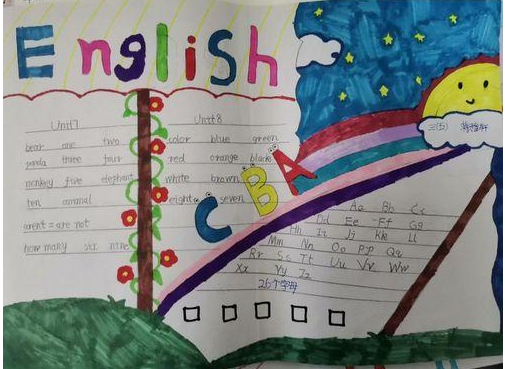 English
Unit7
bear one two
panda three four
monkey five elephant
ten animal
arent = are not
how many six nine
Unit 8
color blue green
red orange black
white brown
eight seven
C B A
三(5)
Aa Bb Cc
Dd Ee Ff Gg
Hh Ii Jj Kk Ll
Mm Nn Oo Pp Qq
Rr Ss Tt Uu Vv Ww
Xx Yy Zz
26个字母